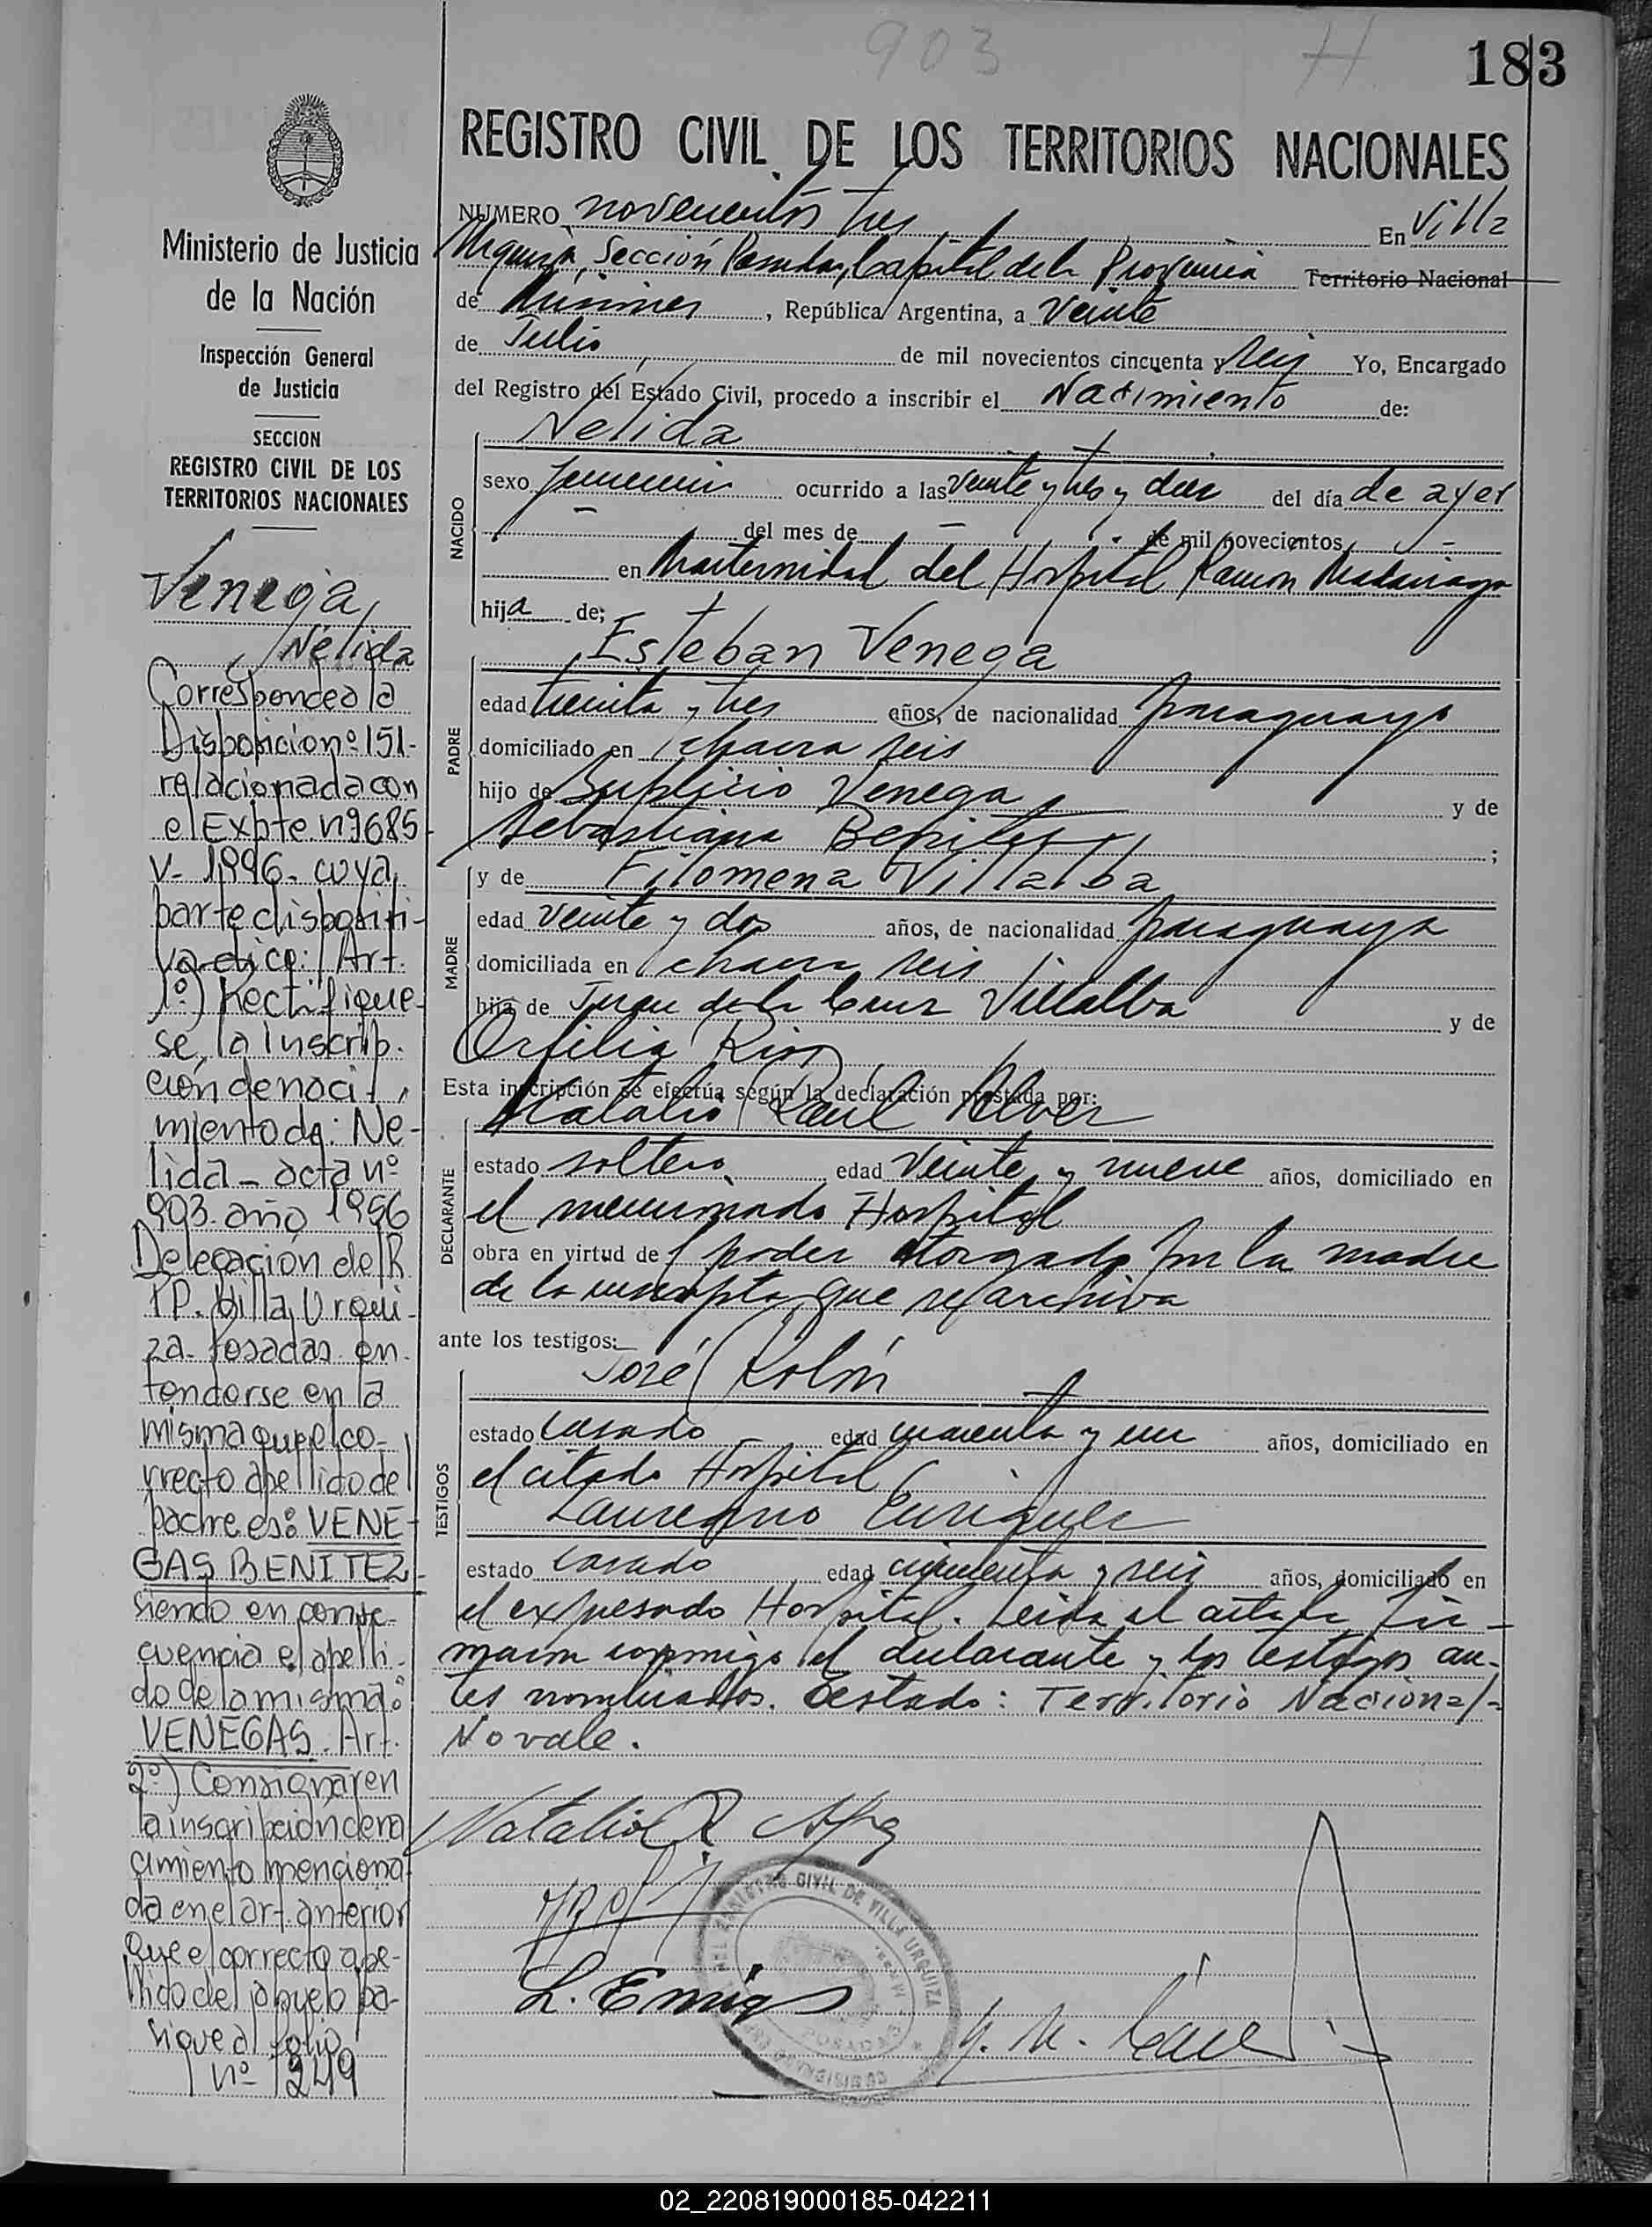 903 H 183
REGISTRO CIVIL DE LOS TERRITORIOS NACIONALES
Ministerio de Justicia
de la Nación
Inspección General
de Justicia
SECCION
REGISTRO CIVIL DE LOS
TERRITORIOS NACIONALES
Venega,
Nélida
Corresponde a la
Disposición nº 151-
relacionada con
el Expte. nº 9685
V- 1996- cuya
parte dispositi-
va dice: Art.
1º) Rectifique-
se, la inscrip-
ción de naci-
miento de: Ne-
lida - acta nº
903. año 1956
Delegacion del R.
PP. Villa Urqui-
za- Posadas en-
tenderse en la
misma que el co-
rrecto apellido del
padre es: VENE-
GAS BENITEZ
siendo en conse-
cuencia el apelli-
do de la misma:
VENEGAS. Art.
2º) Consignar en
la inscripcion de na
cimiento menciona
da en el art. anterior
que el correcto ape-
llido del abuelo pa-
sigue al folio
nº 249
NUMERO novecientos tres En Villa
Urquiza, Sección Posadas, Capital de la Provincia Territorio Nacional
de Misiones, República Argentina, a veinte
de Julio de mil novecientos cincuenta y seis Yo, Encargado
del Registro del Estado Civil, procedo a inscribir el Nacimiento de:
Nélida
NACIDO
sexo femenino ocurrido a las veinte y tres y diez del día de ayer
- del mes de - de mil novecientos -
en Maternidad del Hospital Ramon Madariaga
hija de:
Esteban Venega
PADRE
edad treinta y tres años, de nacionalidad paraguaya
domiciliado en chacra seis
hijo de Suplicio Venega y de
Sebastiana Benitez ;
y de Filomena Villalba
MADRE
edad veinte y dos años, de nacionalidad paraguaya
domiciliada en chacra seis
hija de Juan de la Cruz Villalba y de
Orfilia Rios
Esta inscripción se efectúa según la declaración prestada por:
Natalio Raul Alvez
DECLARANTE
estado soltero edad veinte y nueve años, domiciliado en
el mencionado Hospital
obra en virtud de poder otorgado por la madre
de la inscripta que se archiva
ante los testigos:
José Rolón
TESTIGOS
estado casado edad cuarenta y un años, domiciliado en
el citado Hospital
Laureano Enriquez
estado casado edad cincuenta y seis años, domiciliado en
el expresado Hospital. Leida el acta la fir-
maron conmigo el declarante y los testigos an-
tes nombrados. Testado: Territorio Nacional-
No vale.
Natalio R
L. Enriqz
REGISTRO CIVIL DE VILLA URQUIZA
POSADAS
02_220819000185-042211